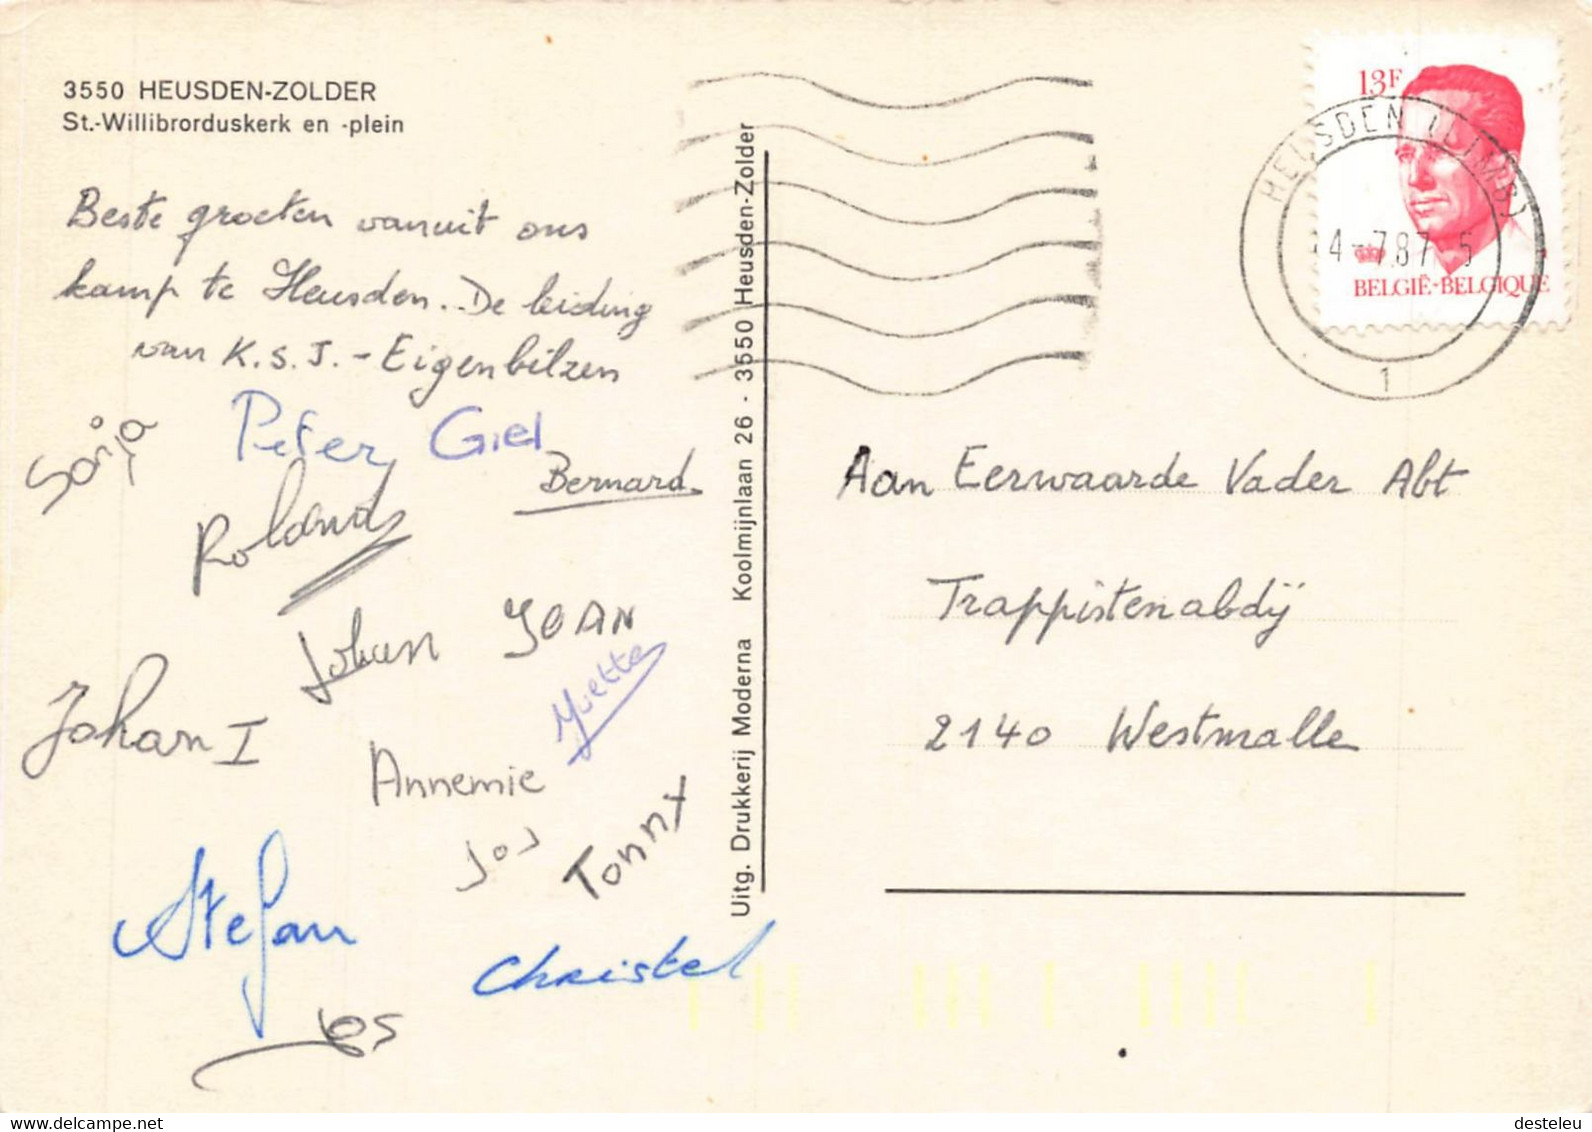 3550 HEUSDEN-ZOLDER
St.-Willibrorduskerk en -plein
Beste groeten vanuit ons
kamp te Heusden.. De leiding
van K.S.J. - Eigenbilzen
Sonja
Peter
Giel
Bernard
Roland
Johan
JOAN
Yvette
Johan I
Annemie
Jos
Tonny
Stefan
Christel
Jos
Uitg. Drukkerij Moderna Koolmijnlaan 26 - 3550 Heusden-Zolder
13F
BELGIË-BELGIQUE
HEUSDEN (LIMB)
4-7.87
1
Aan Eerwaarde Vader Abt
Trappistenabdij
2140 Westmalle
delcampe.net
desteleu